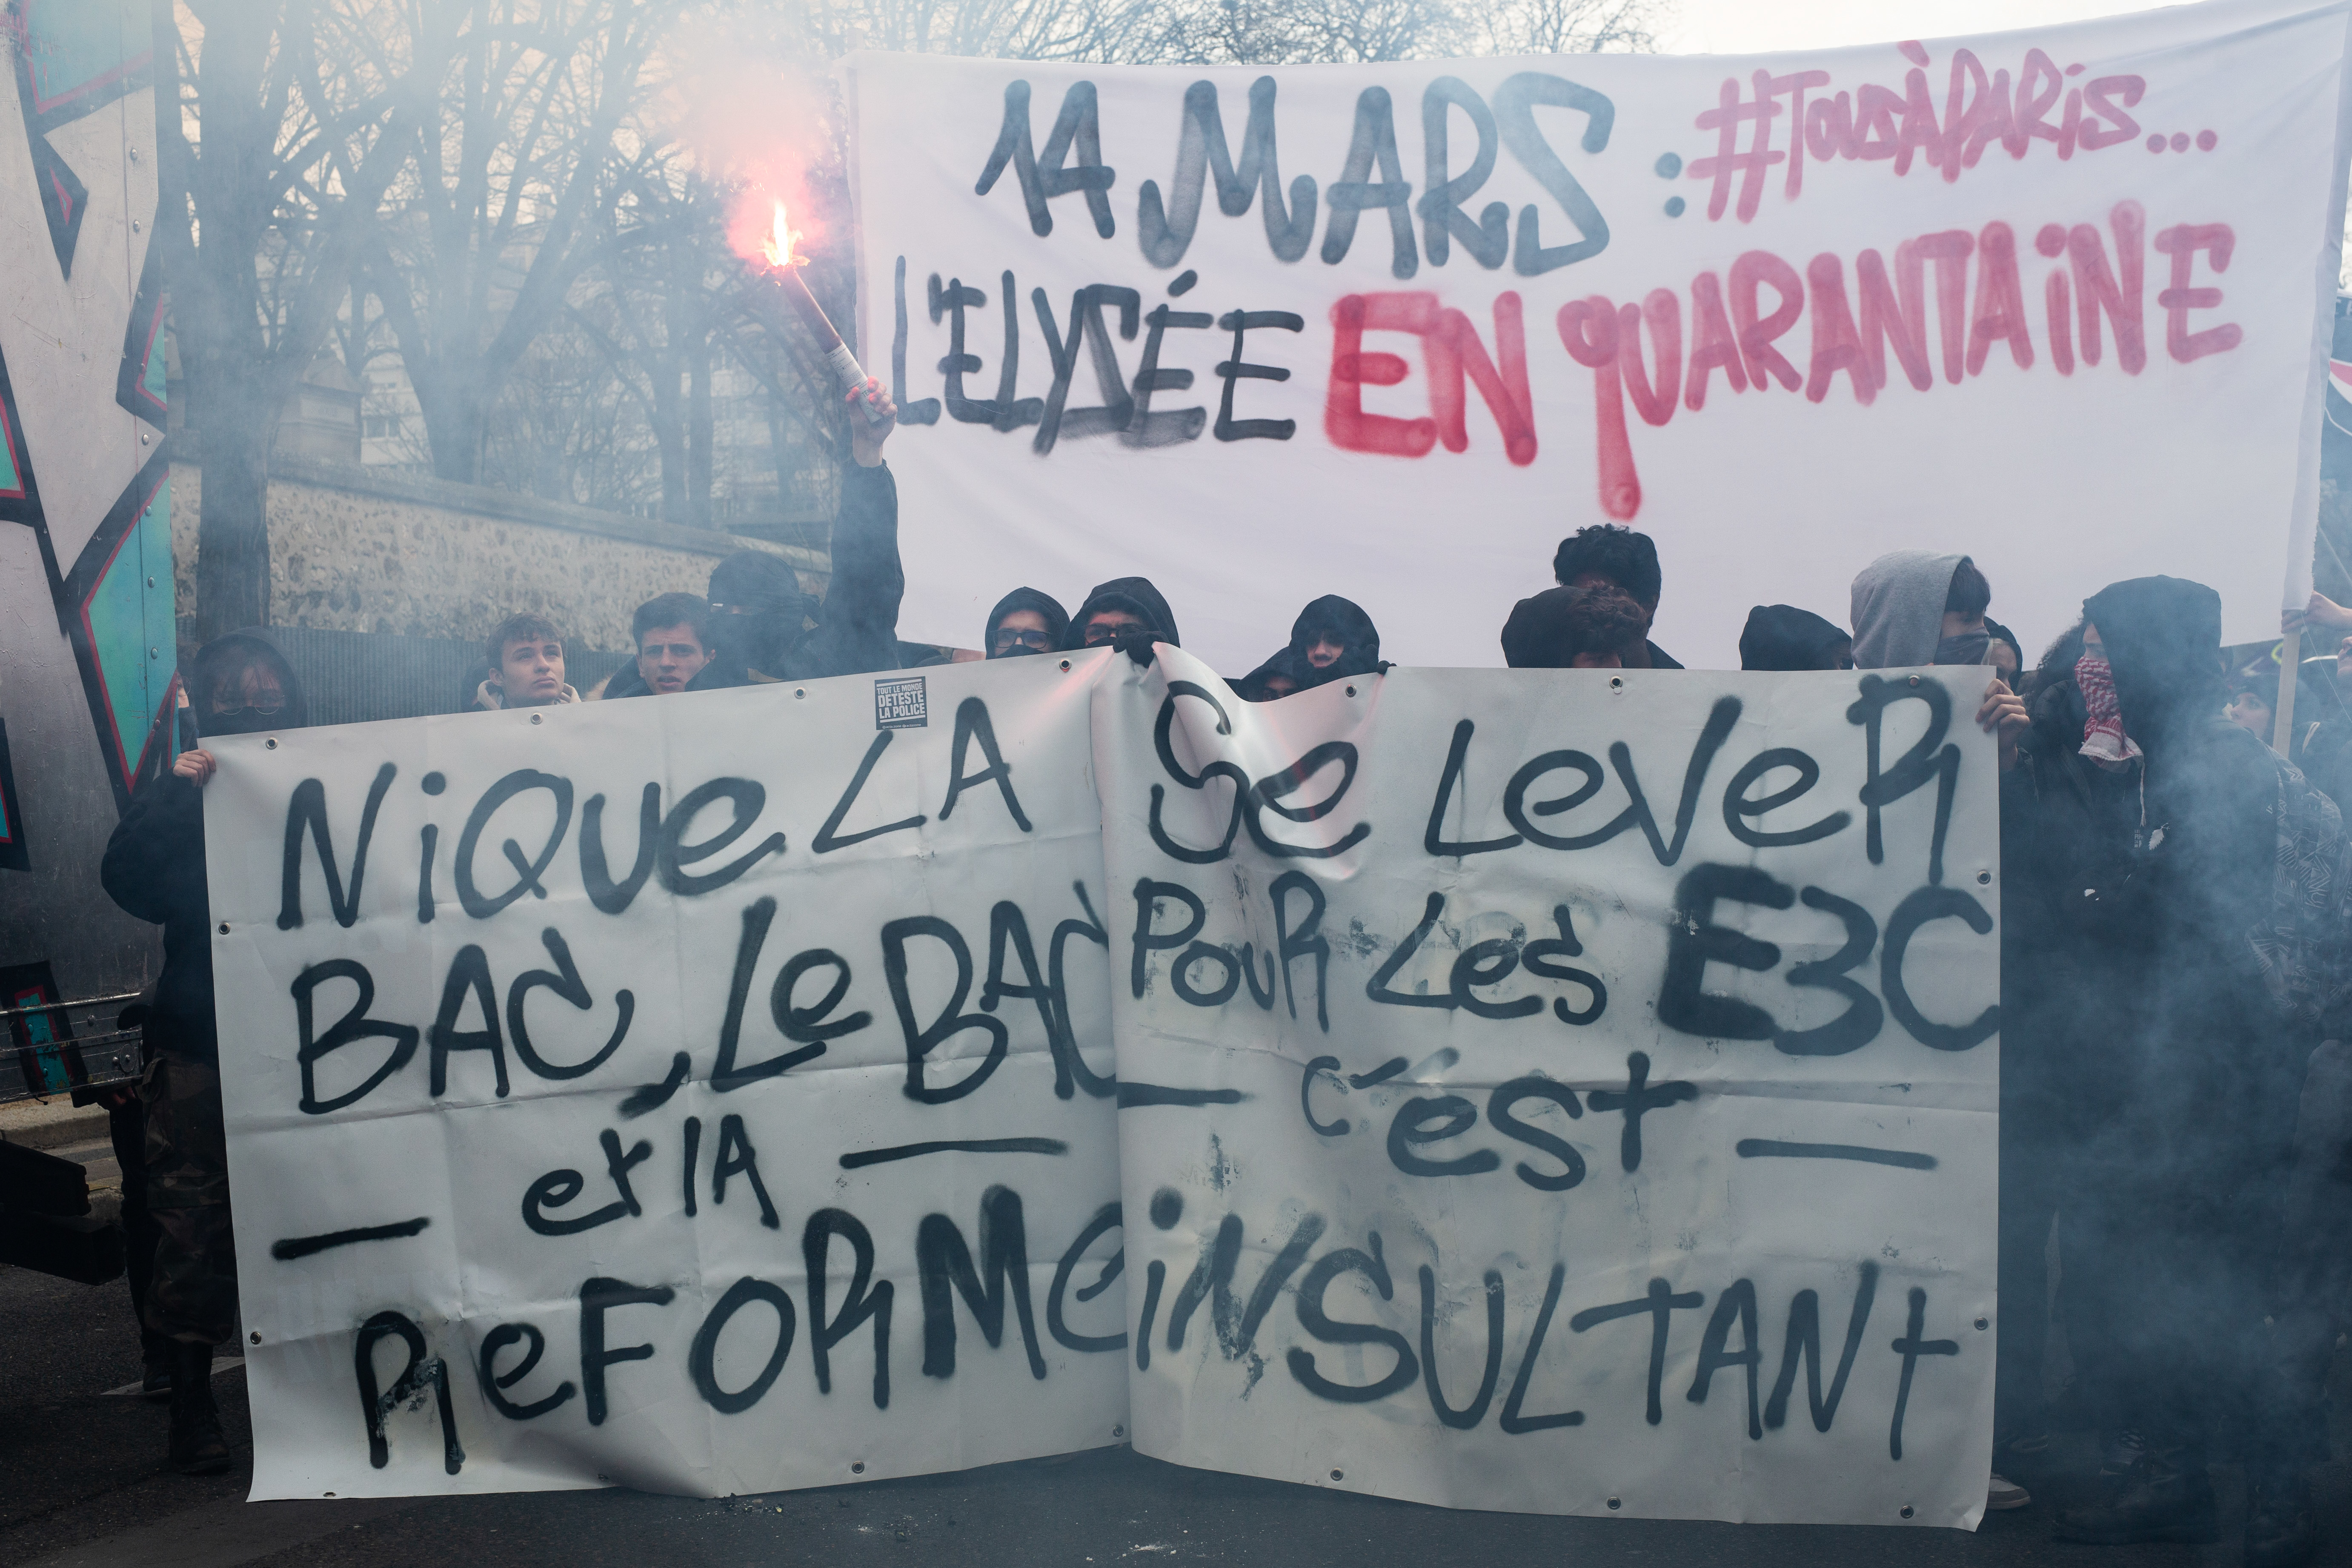 14 MARS : #TOUSÀPARIS...
L'ELYSÉE EN QUARANTAINE
TOUT LE MONDE
DETESTE
LA POLICE
NiQUe LA
BAC, Le BAC
et lA
ReFORMe
Se LeVeR
POUR Les E3C
c'est
iNSULTANt